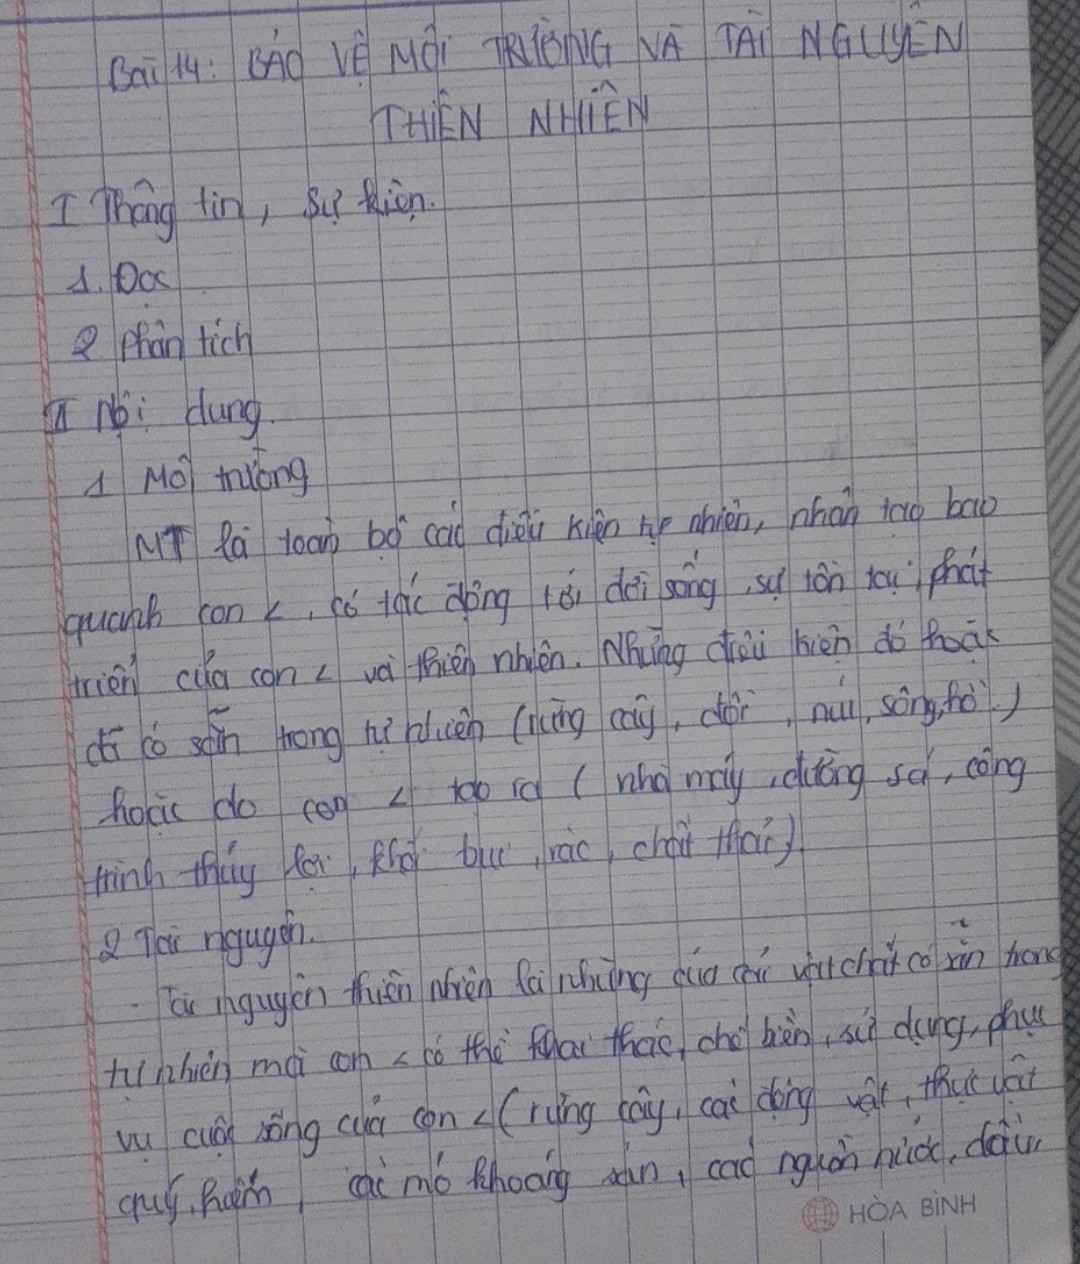 Bài 14: BẢO VỆ MÔI TRƯỜNG VÀ TÀI NGUYÊN
THIÊN NHIÊN
I Thông tin, sự kiện.
1. Đọc
2 phân tích
II Nội dung.
1 Môi trường
MT là toàn bộ các điều kiện tự nhiên, nhân tạo bao
quanh con <, có tác động tới đời sống, sự tồn tại, phát
triển của con < và thiên nhiên. Những điều kiện đó hoặc
đã có sẵn trong tự nhiên (rừng cây, đồi, núi, sông, hồ..)
hoặc do con < tạo ra (nhà máy, đường sá, công
trình thủy lợi, khói bụi, rác, chất thải)
2 Tài nguyên.
- Tài nguyên thiên nhiên là những của cải vật chất có sẵn trong
tự nhiên mà con < có thể khai thác, chế biến, sử dụng, phục
vụ cuộc sống của con < (rừng cây, các động vật, thực vật
quý, hiếm, các mỏ khoáng sản, các nguồn nước, dầu
HÒA BÌNH